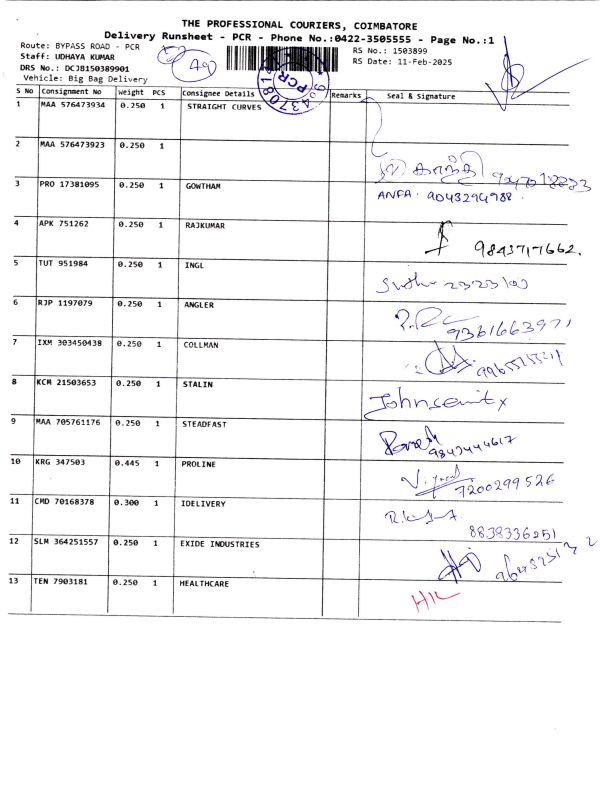 THE PROFESSIONAL COURIERS, COIMBATORE
Delivery Runsheet - PCR - Phone No.:0422-3505555 - Page No.:1
Route: BYPASS ROAD - PCR
RS No.: 1503899
Staff: UDHAYA KUMAR
RS Date: 11-Feb-2025
DRS No.: DCJB150389901
Vehicle: Big Bag Delivery
PCR
S No Consignment No Weight PCS Consignee Details Remarks Seal & Signature
1 MAA 576473934 0.250 1 STRAIGHT CURVES
2 MAA 576473923 0.250 1
3 PRO 17381095 0.250 1 GOWTHAM ANFA. 9043294988
4 APK 751262 0.250 1 RAJKUMAR 9843717662.
5 TUT 951984 0.250 1 INGL
6 RJP 1197079 0.250 1 ANGLER 9361663971
7 IXM 303450438 0.250 1 COLLMAN
8 KCM 21503653 0.250 1 STALIN
9 MAA 705761176 0.250 1 STEADFAST 9842444617
10 KRG 347503 0.445 1 PROLINE 7200299526
11 CMD 70168378 0.300 1 IDELIVERY 8838336251
12 SLM 364251557 0.250 1 EXIDE INDUSTRIES
13 TEN 7903181 0.250 1 HEALTHCARE